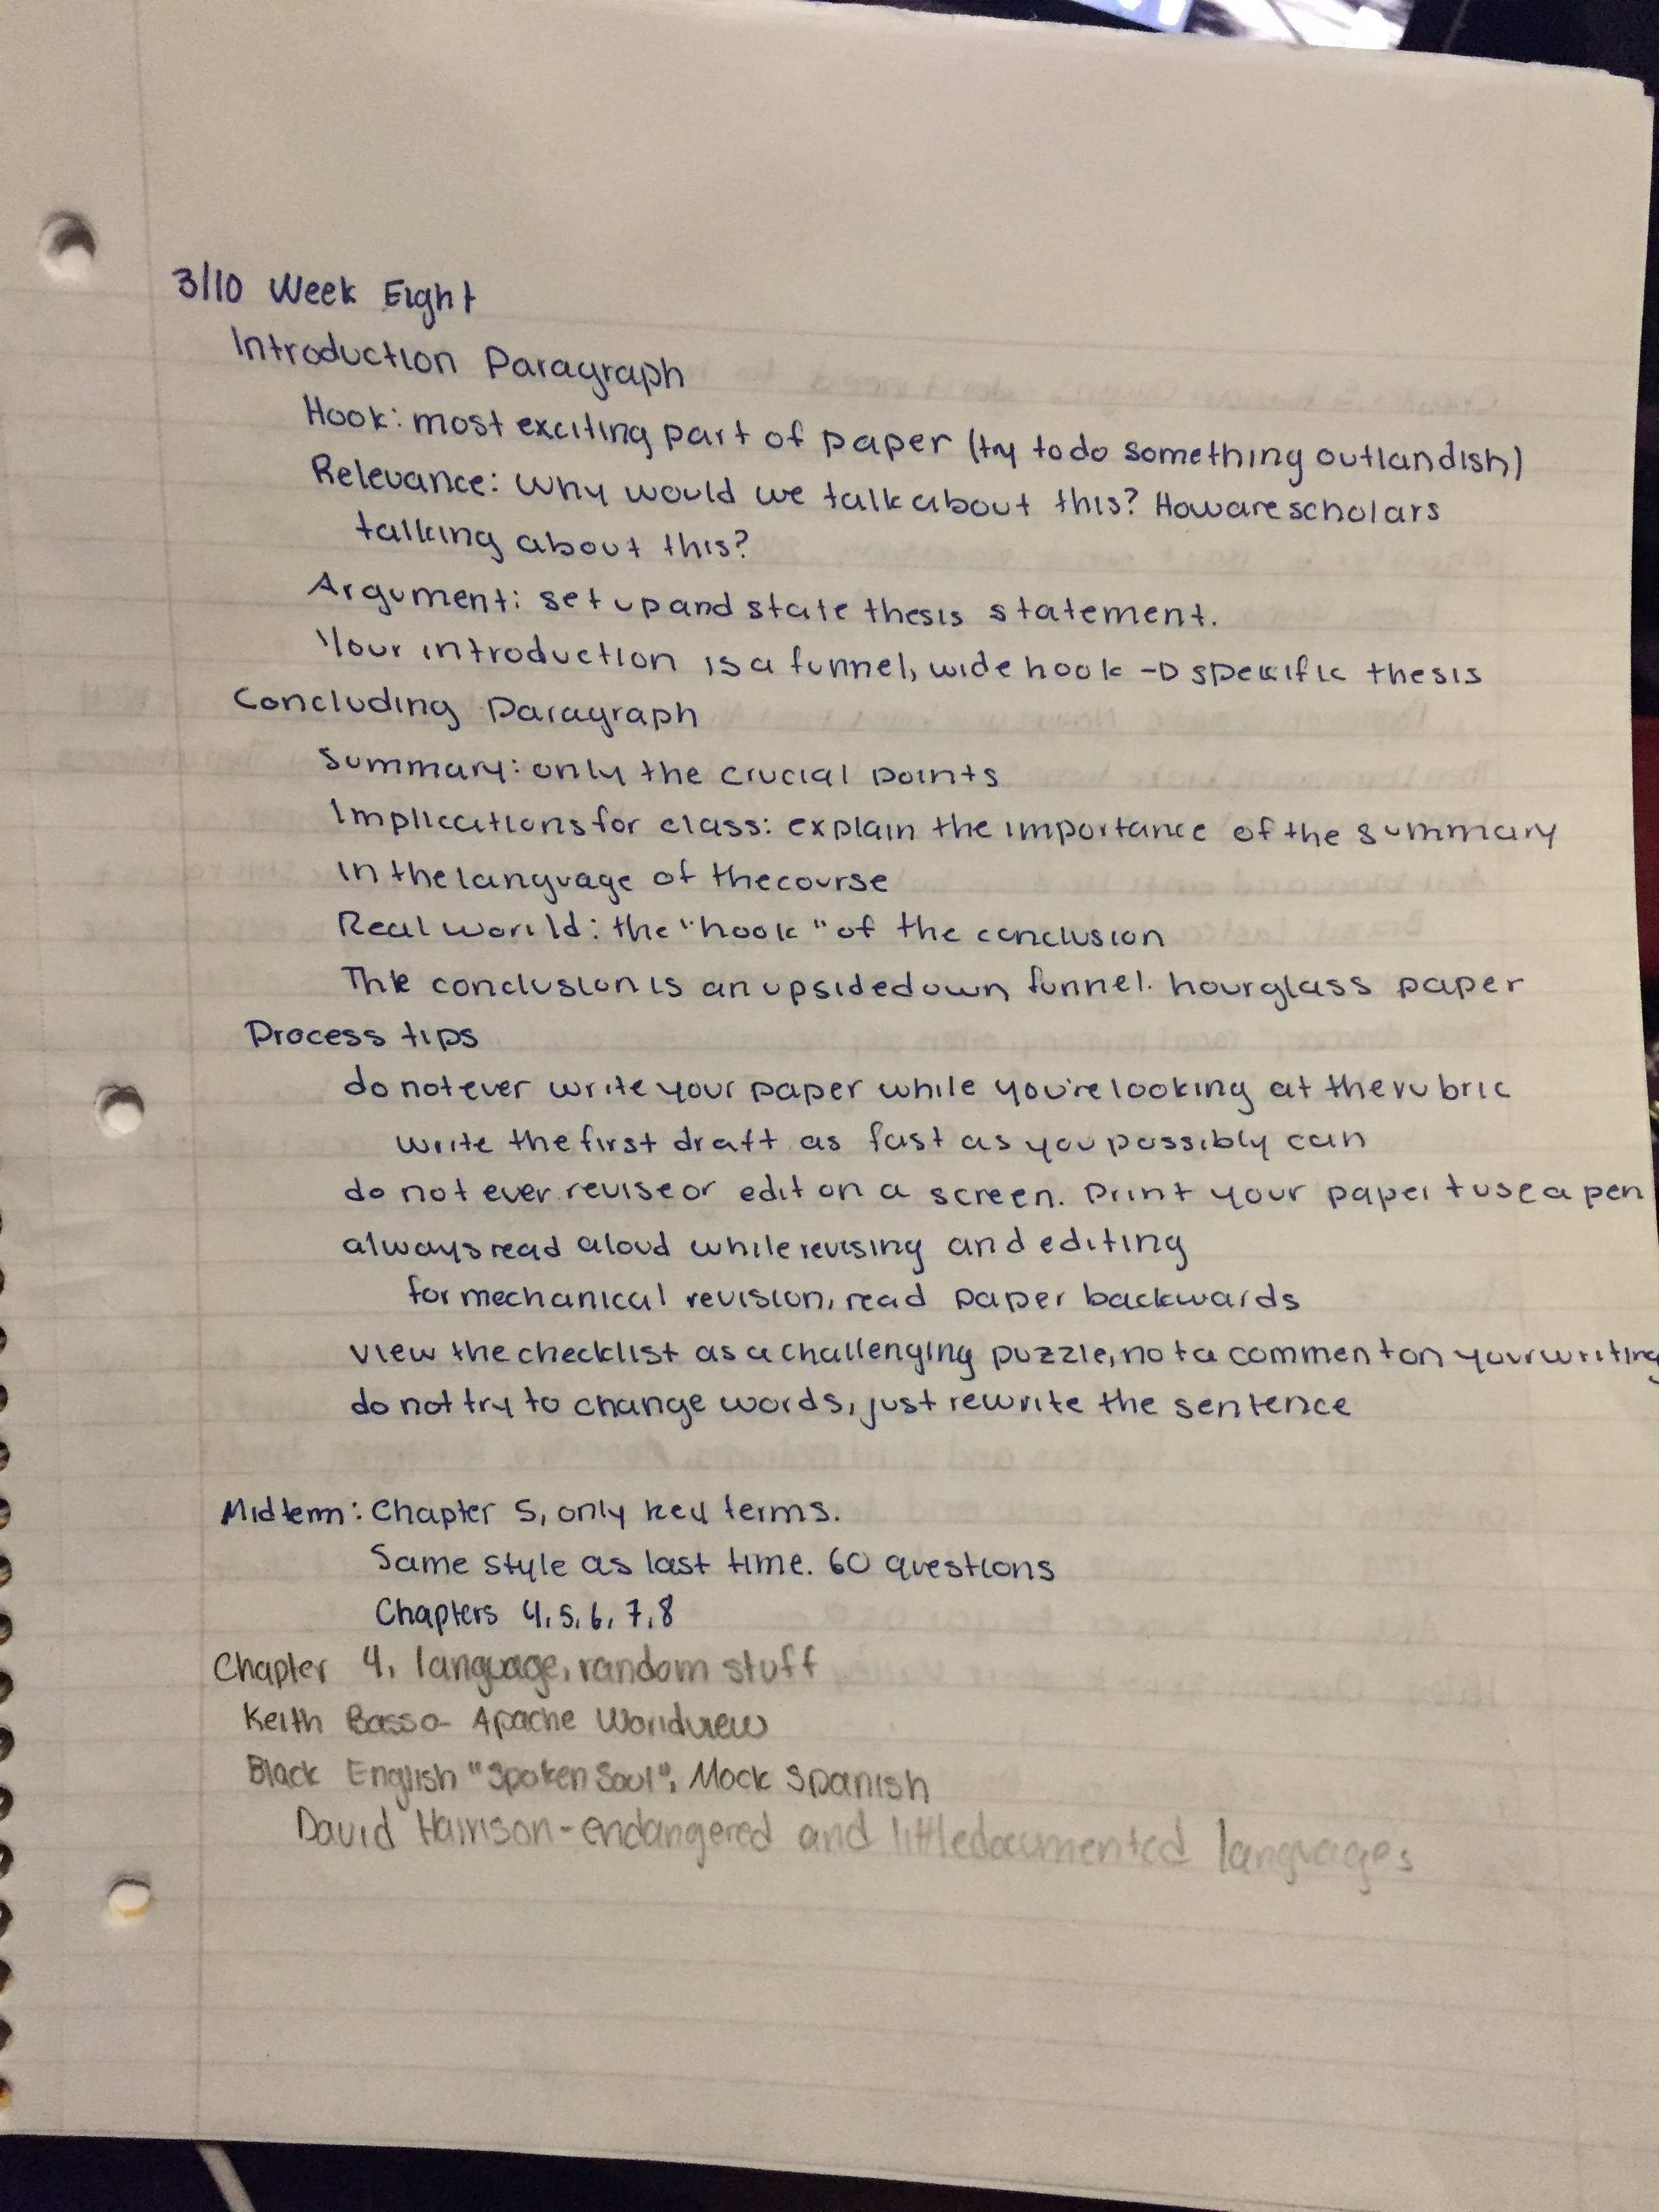 3/10 Week Eight
Introduction Paragraph
Hook: most exciting part of paper (try to do something outlandish)
Relevance: Why would we talk about this? How are scholars
talking about this?
Argument: set up and state thesis statement.
Your introduction is a funnel, wide hook → specific thesis
Concluding Paragraph
Summary: only the crucial points
Implications for class: explain the importance of the summary
in the language of the course
Real world: the "hook" of the conclusion
The conclusion is an upside down funnel. hourglass paper
Process tips
do not ever write your paper while you're looking at the rubric
write the first draft as fast as you possibly can
do not ever revise or edit on a screen. Print your paper + use a pen
always read aloud while revising and editing
for mechanical revision, read paper backwards
view the checklist as a challenging puzzle, not a comment on your writing
do not try to change words, just rewrite the sentence
Midterm: Chapter 5, only key terms.
Same style as last time. 60 questions
Chapters 4, 5, 6, 7, 8
Chapter 4, language, random stuff
Keith Basso- Apache Worldview
Black English "Spoken Soul", Mock Spanish
David Harrison - endangered and little documented languages